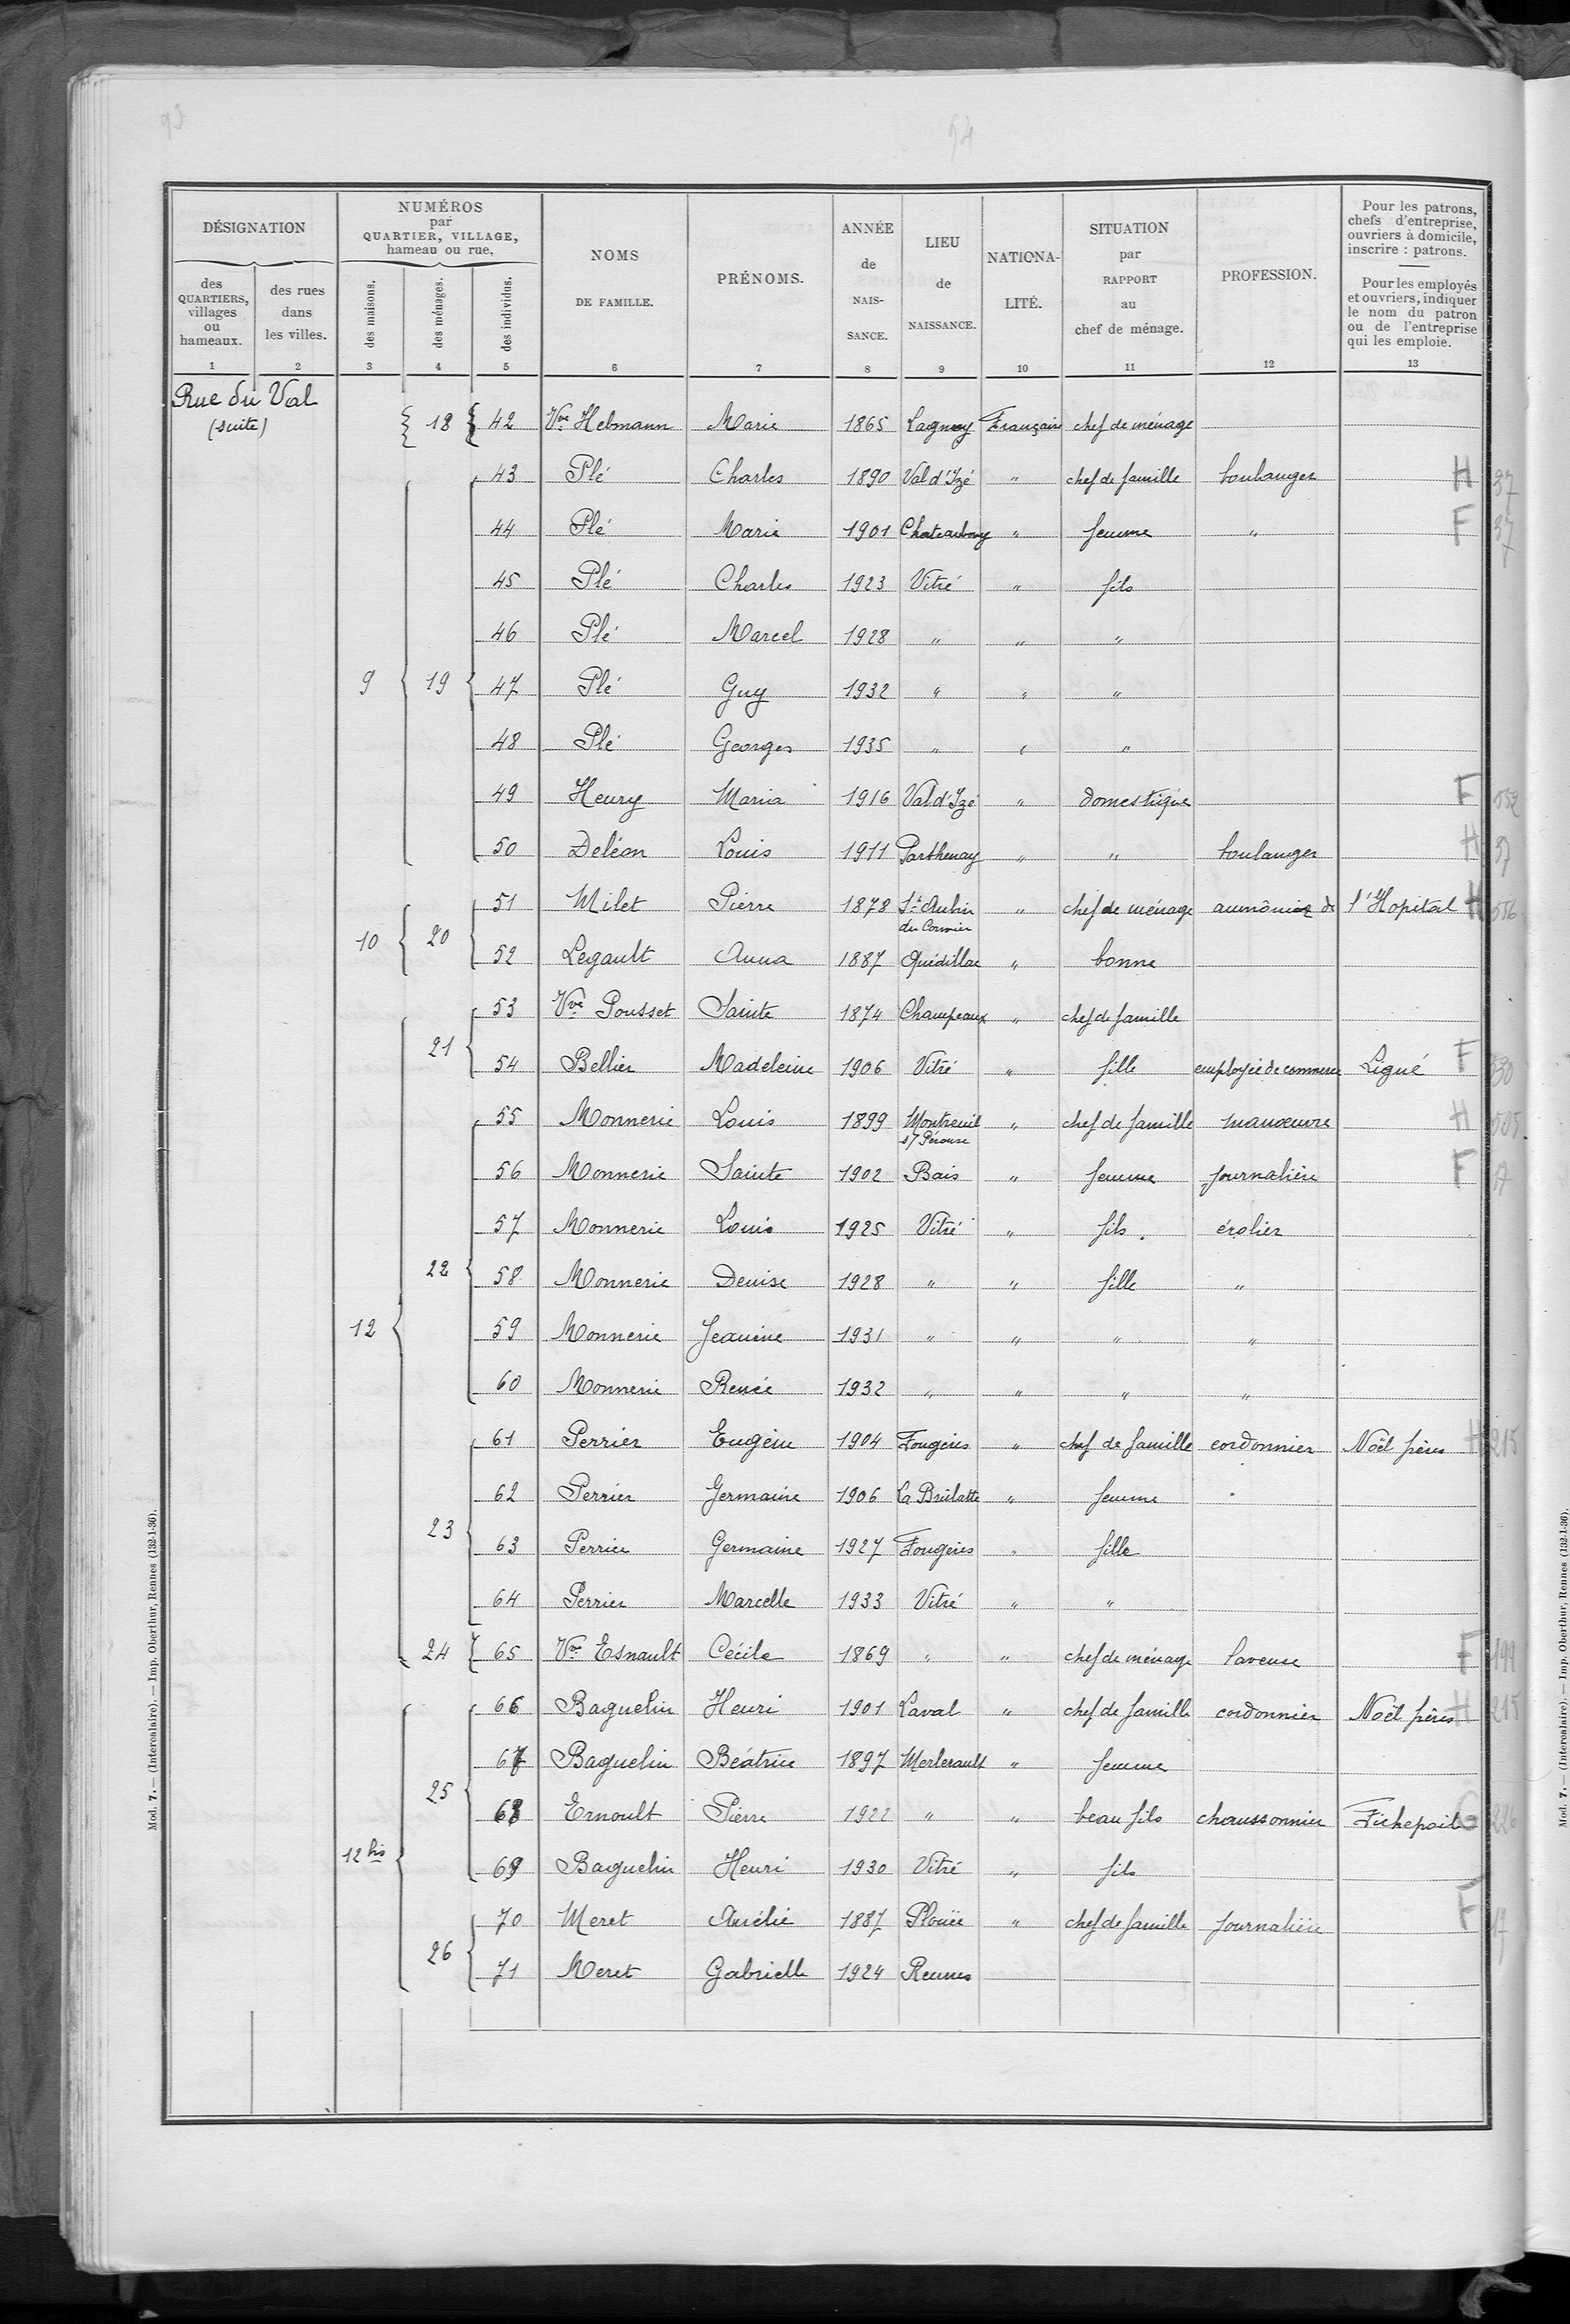 94
DÉSIGNATION
des QUARTIERS, villages ou hameaux.
des rues dans les villes.
NUMÉROS par QUARTIER, VILLAGE, hameau ou rue.
des maisons.
des ménages.
des individus.
NOMS DE FAMILLE.
PRÉNOMS.
ANNÉE de NAIS-SANCE.
LIEU de NAISSANCE.
NATIONA-LITÉ.
SITUATION par RAPPORT au chef de ménage.
PROFESSION.
Pour les patrons, chefs d'entreprise, ouvriers à domicile, inscrire : patrons.
Pour les employés et ouvriers, indiquer le nom du patron ou de l'entreprise qui les emploie.
1 2 3 4 5 6 7 8 9 10 11 12 13
Rue du Val
(suite)
18 42 Vve Hebmann Marie 1865 Lagny Française chef de ménage
43 Plé Charles 1890 Val d'Izé " chef de famille boulanger H 37
44 Plé Marie 1901 Chateaubourg " femme " F 37
45 Plé Charles 1923 Vitré " fils
46 Plé Marcel 1928 " " "
9 19 47 Plé Guy 1932 " " "
48 Plé Georges 1935 " " "
49 Heury Maria 1916 Val d'Izé " domestique F 552
50 Deléon Louis 1911 Parthenay " " boulanger H 37
51 Milet Pierre 1878 St Aubin du Cormier " chef de ménage aumônier de l'Hopital H 556
10 20
52 Legault Anna 1887 Quédillac " bonne
53 Vve Pousset Sainte 1874 Champeaux " chef de famille
21
54 Bellier Madeleine 1906 Vitré " fille employée de commerce Ligué F 330
55 Monnerie Louis 1899 Montreuil s/ Pérouse " chef de famille manoeuvre H 505
56 Monnerie Sainte 1902 Bais " femme journalière F 17
57 Monnerie Louis 1925 Vitré " fils. écolier
22 58 Monnerie Denise 1928 " " fille "
12 59 Monnerie Jeanine 1931 " " " "
60 Monnerie Renée 1932 " " " "
61 Perrier Eugène 1904 Fougères " chef de famille cordonnier Noël frères H 215
62 Perrier Germaine 1906 La Brûlatte " femme
23
63 Perrier Germaine 1927 Fougères " fille
64 Perrier Marcelle 1933 Vitré " "
24 65 Vve Esnault Cécile 1869 " " chef de ménage laveuse F 199
66 Baguelin Henri 1901 Laval " chef de famille cordonnier Noël frères H 215
67 Baguelin Béatrice 1897 Merlerault " femme
25
68 Ernoult Pierre 1922 " " beau fils chaussonnier Fichepoil G 226
12 bis
69 Baguelin Henri 1930 Vitré " fils
70 Meret Aurélie 1887 Plouër " chef de famille journalière F 17
26
71 Meret Gabrielle 1924 Rennes
Mod. 7. — (Intercalaire). — Imp. Oberthur, Rennes (132-1-36).
Mod. 7. — (Intercalaire). — Imp. Oberthur, Rennes (132-1-36).